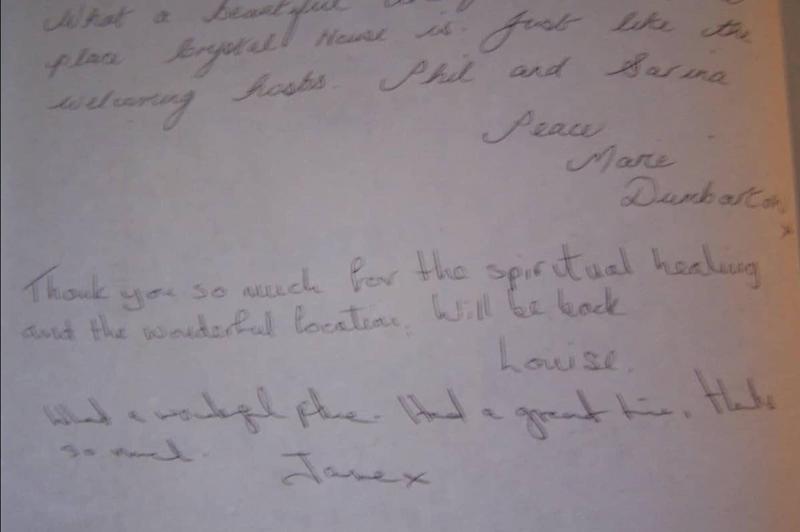 What a beautiful
place Krystal House is. Just like the
welcoming hosts. Phil and Sarina
Peace
Marie
Dumbarton
x
Thank you so much for the spiritual healing
and the wonderful location. Will be back
Louise.
What a wonderful place. Had a great time. Thanks
so much.
Jane x